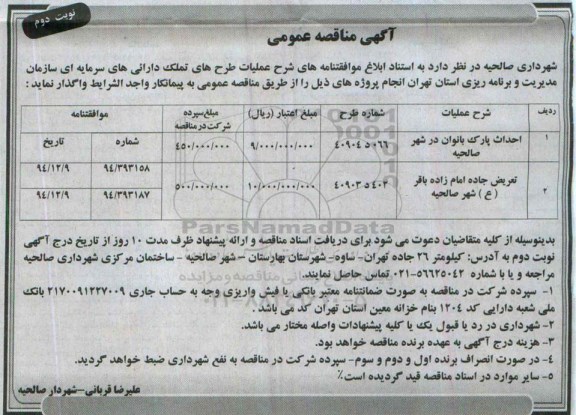 نوبت دوم
آگهی مناقصه عمومی
شهرداری صالحیه در نظر دارد به استناد ابلاغ موافقتنامه های شرح عملیات طرح های تملک دارائی های سرمایه ای سازمان
مدیریت و برنامه ریزی استان تهران انجام پروژه های ذیل را از طریق مناقصه عمومی به پیمانکار واجد الشرایط واگذار نماید :
ردیف شرح عملیات شماره طرح مبلغ اعتبار (ریال) مبلغ سپرده شرکت در مناقصه موافقتنامه
شماره تاریخ
۱ احداث پارک بانوان در شهر صالحیه ۴۰۹۰۴ ۵۰۶۶ ۹/۰۰۰/۰۰۰/۰۰۰ ۴۵۰/۰۰۰/۰۰۰ ۹۴/۳۹۳۱۵۸ ۹۴/۱۲/۹
۲ تعریض جاده امام زاده باقر ( ع ) شهر صالحیه ۴۰۹۰۳ ۵۴۰۳ ۱۰/۰۰۰/۰۰۰/۰۰۰ ۵۰۰/۰۰۰/۰۰۰ ۹۴/۳۹۳۱۸۷ ۹۴/۱۲/۹
ParsNamadData
بدینوسیله از کلیه متقاضیان دعوت می شود برای دریافت اسناد مناقصه و ارائه پیشنهاد ظرف مدت ۱۰ روز از تاریخ درج آگهی
نوبت دوم به آدرس: کیلومتر ۲۶ جاده تهران- ساوه- شهرستان بهارستان - شهر صالحیه - ساختمان مرکزی شهرداری صالحیه
مراجعه و یا با شماره ۵۶۶۲۵۰۴۲-۰۲۱ تماس حاصل نمایند.
۱- سپرده شرکت در مناقصه به صورت ضمانتنامه معتبر بانکی یا فیش واریزی وجه به حساب جاری ۲۱۷۰۰۹۱۲۲۷۰۰۹ بانک
ملی شعبه دارایی کد ۱۳۰۴ بنام خزانه معین استان تهران کد می باشد .
۲- شهرداری در رد یا قبول یک یا کلیه پیشنهادات واصله مختار می باشد.
۳- هزینه درج آگهی به عهده برنده مناقصه خواهد بود.
۴- در صورت انصراف برنده اول و دوم و سوم- سپرده شرکت در مناقصه به نفع شهرداری ضبط خواهد گردید.
۵- سایر موارد در اسناد مناقصه قید گردیده است٪
علیرضا قربانی-شهردار صالحیه